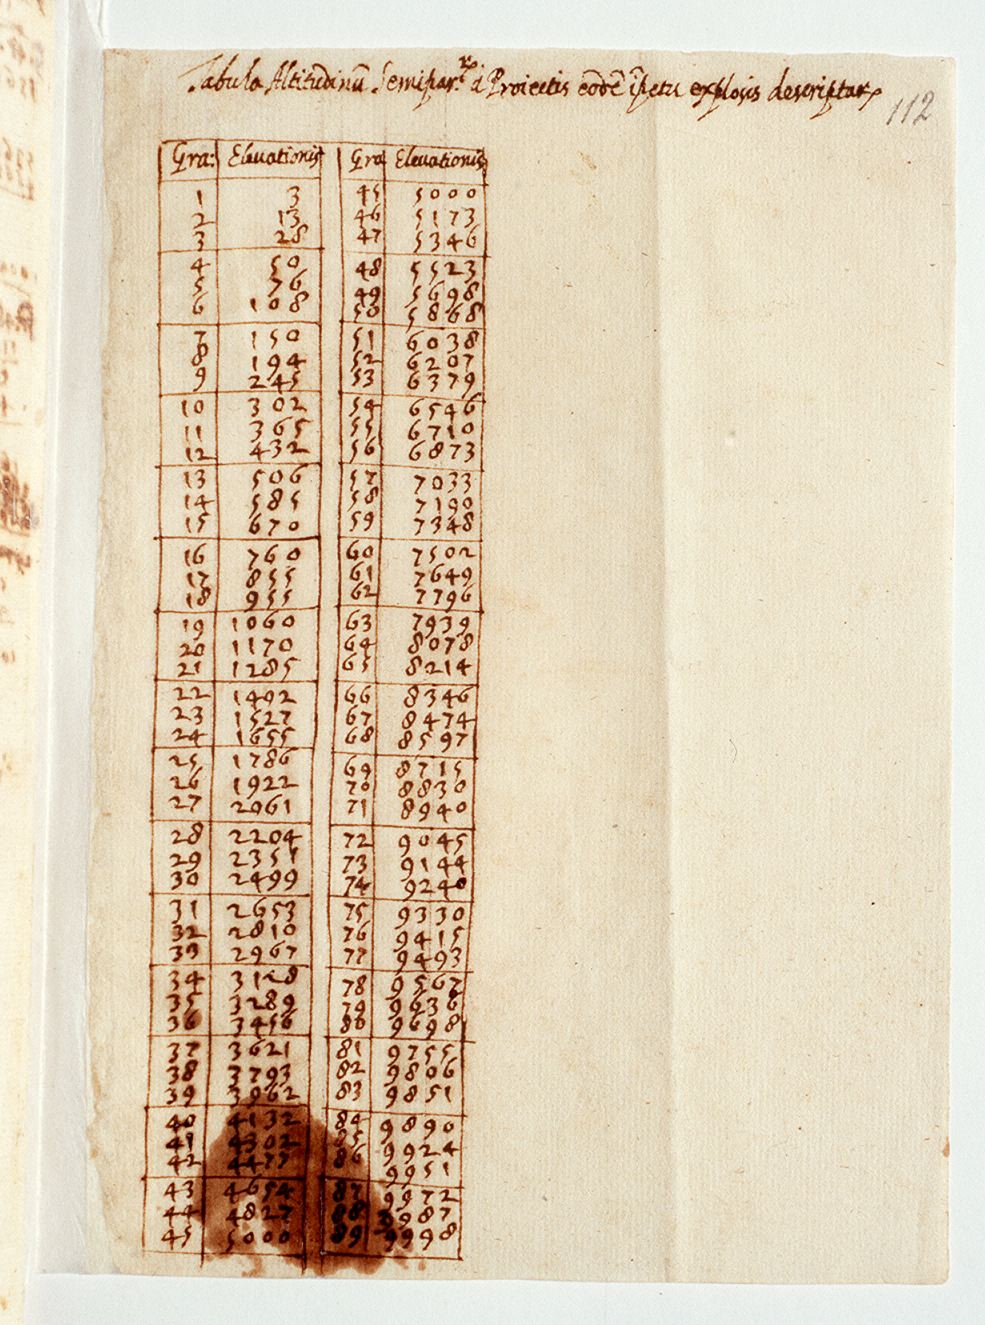 Tabula Altitudinū Semipar.rū à Proiectis eodē īpetu explosis descriptarū
112
Gra: Elevationis Gra Elevationis
1 3 45 5000
2 13 46 5173
3 28 47 5346
4 50 48 5523
5 76 49 5698
6 108 50 5868
7 150 51 6038
8 194 52 6207
9 245 53 6379
10 302 54 6546
11 365 55 6710
12 432 56 6873
13 506 57 7033
14 585 58 7190
15 670 59 7348
16 760 60 7502
17 855 61 7649
18 955 62 7796
19 1060 63 7939
20 1170 64 8078
21 1285 65 8214
22 1402 66 8346
23 1527 67 8474
24 1655 68 8597
25 1786 69 8715
26 1922 70 8830
27 2061 71 8940
28 2204 72 9045
29 2351 73 9144
30 2499 74 9240
31 2653 75 9330
32 2810 76 9415
33 2967 77 9493
34 3128 78 9567
35 3289 79 9636
36 3456 80 9698
37 3621 81 9755
38 3793 82 9806
39 3962 83 9851
40 4132 84 9890
41 4302 85 9924
42 4477 86 9951
43 4654 87 9972
44 4827 88 9987
45 5000 89 9998